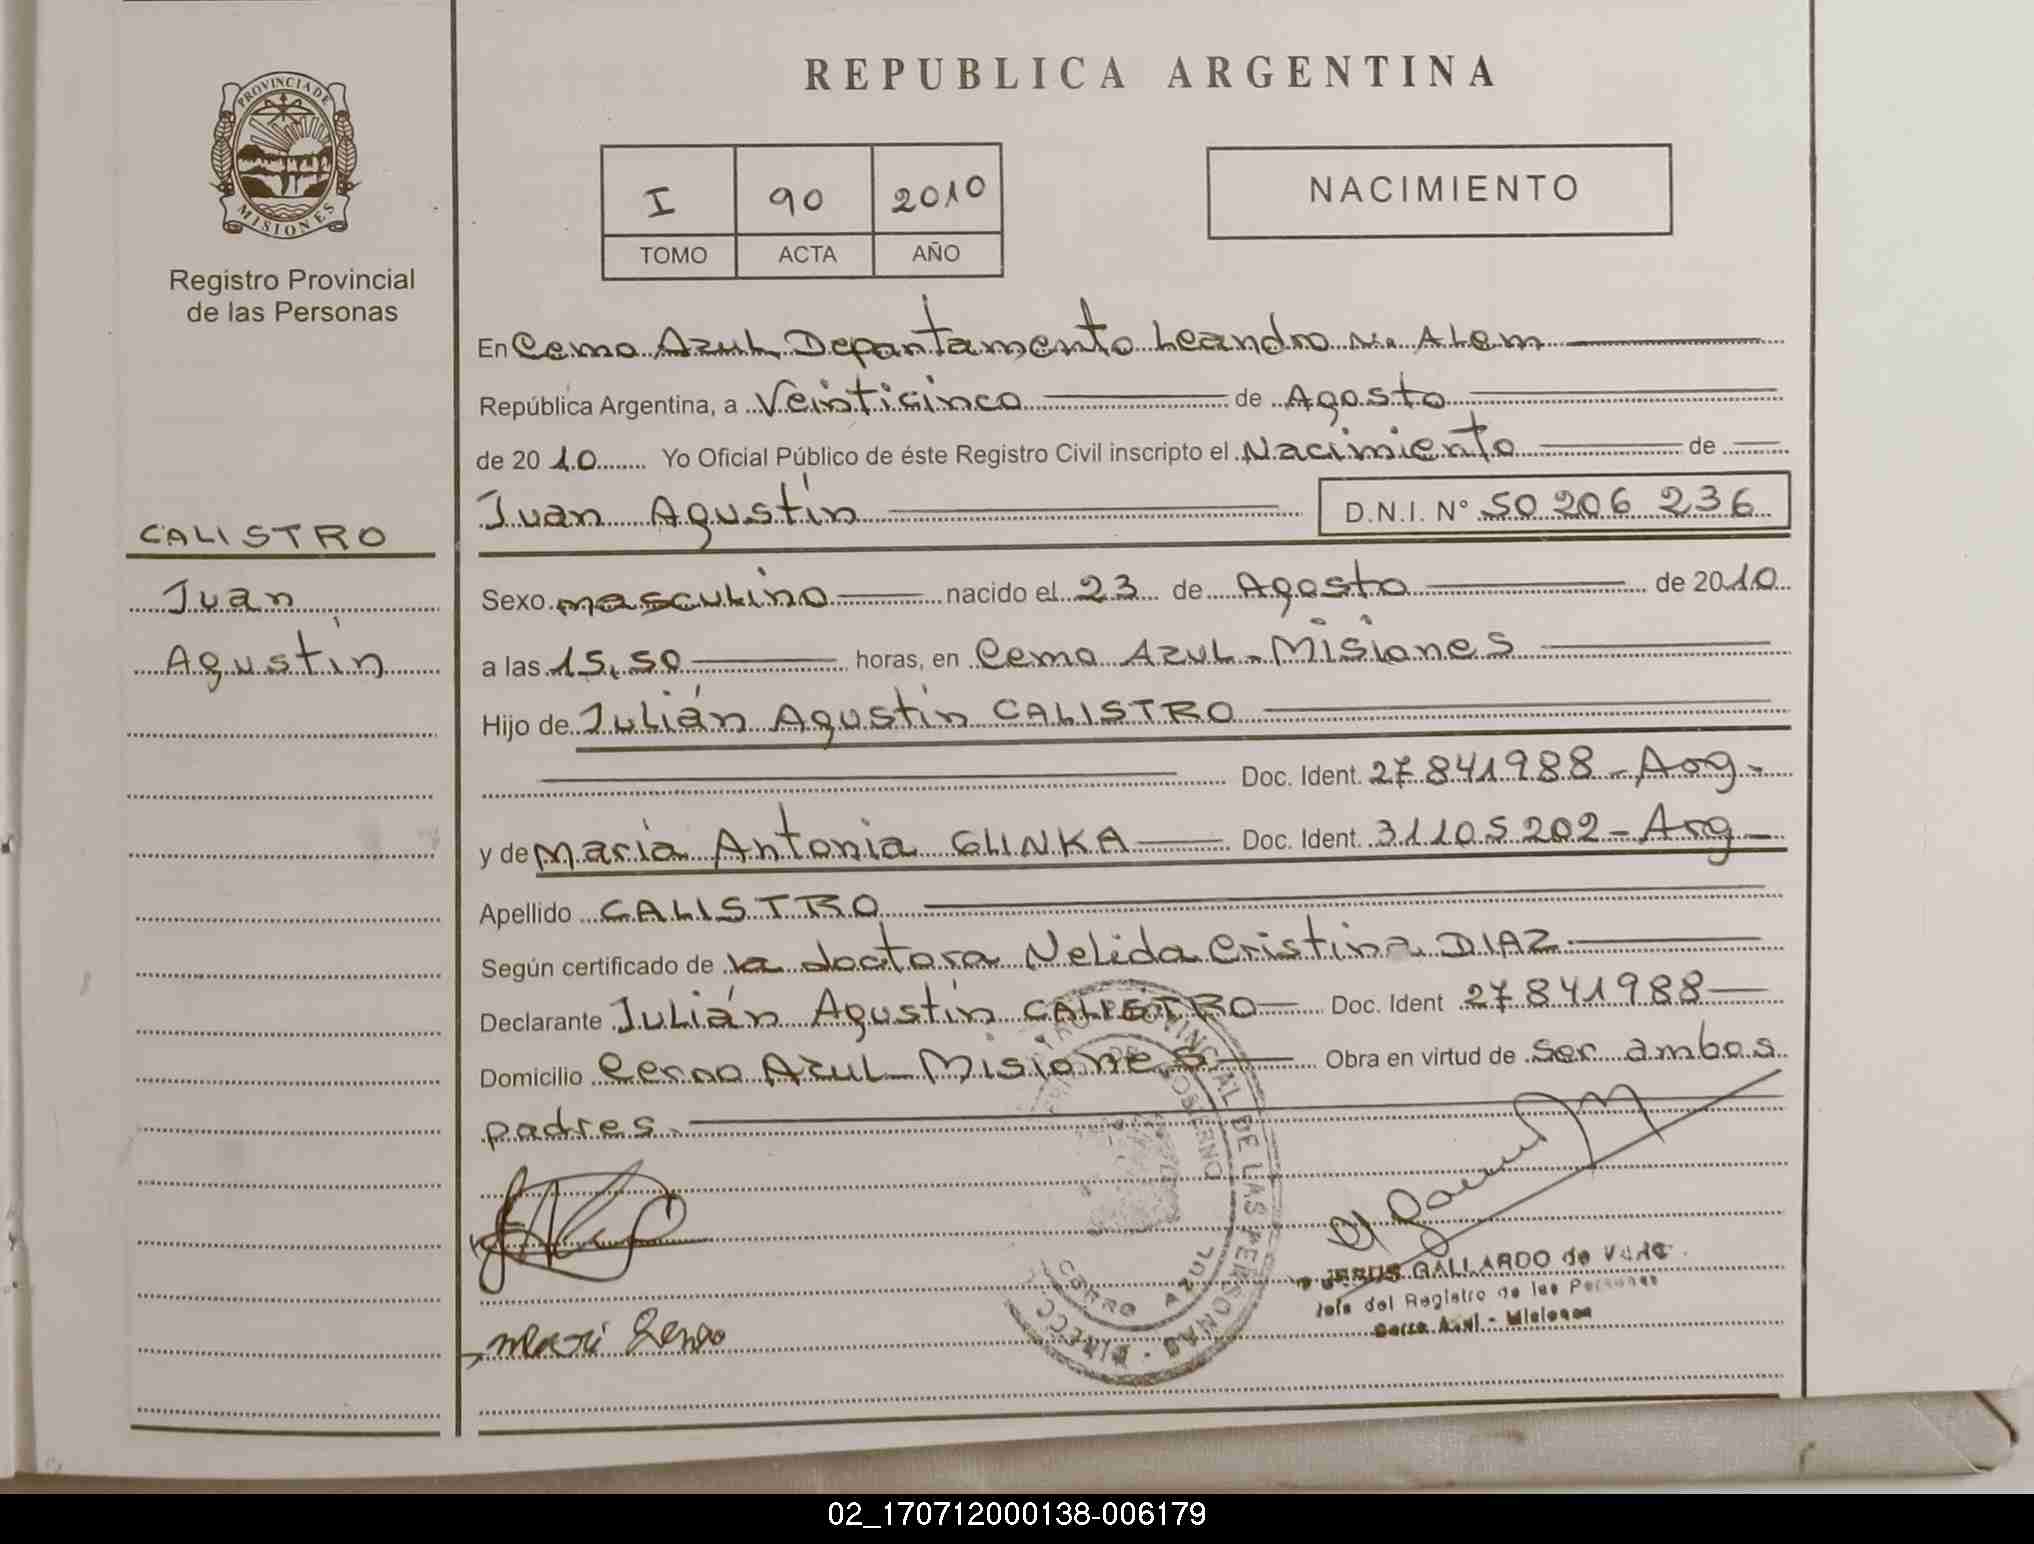 PROVINCIA DE
MISIONES
Registro Provincial
de las Personas
CALISTRO
Juan
Agustín
REPUBLICA ARGENTINA
I 90 2010
TOMO ACTA AÑO
NACIMIENTO
En Cerro Azul Departamento Leandro N. Alem
República Argentina, a Veinticinco de Agosto
de 2010 Yo Oficial Público de éste Registro Civil inscripto el Nacimiento de
Juan Agustín D.N.I. N° 50 206 236
Sexo masculino nacido el 23 de Agosto de 2010
a las 15,50 horas, en Cerro Azul - Misiones
Hijo de Julián Agustín CALISTRO
Doc. Ident. 27841988 - Arg -
y de María Antonia GLINKA Doc. Ident. 31105202 - Arg -
Apellido CALISTRO
Según certificado de la doctora Nelida Cristina DIAZ
Declarante Julián Agustín CALISTRO Doc. Ident 27841988
Domicilio Cerro Azul - Misiones Obra en virtud de ser ambos
padres.
PROVINCIAL DE LAS PERSONAS
GOBIERNO
CERRO AZUL
JESUS GALLARDO de
Jefe del Registro de las Personas
Cerro Azul - Misiones
02_170712000138-006179